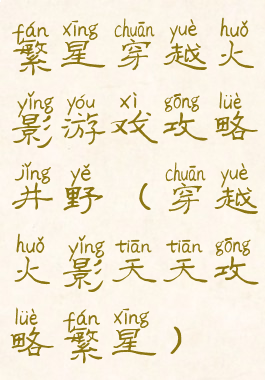 fán xīng chuān yuè huǒ
繁星穿越火
yǐng yóu xì gōng lüè
影游戏攻略
jǐng yě chuān yuè
井野（穿越
huǒ yǐng tiān tiān gōng
火影天天攻
lüè fán xīng
略繁星）